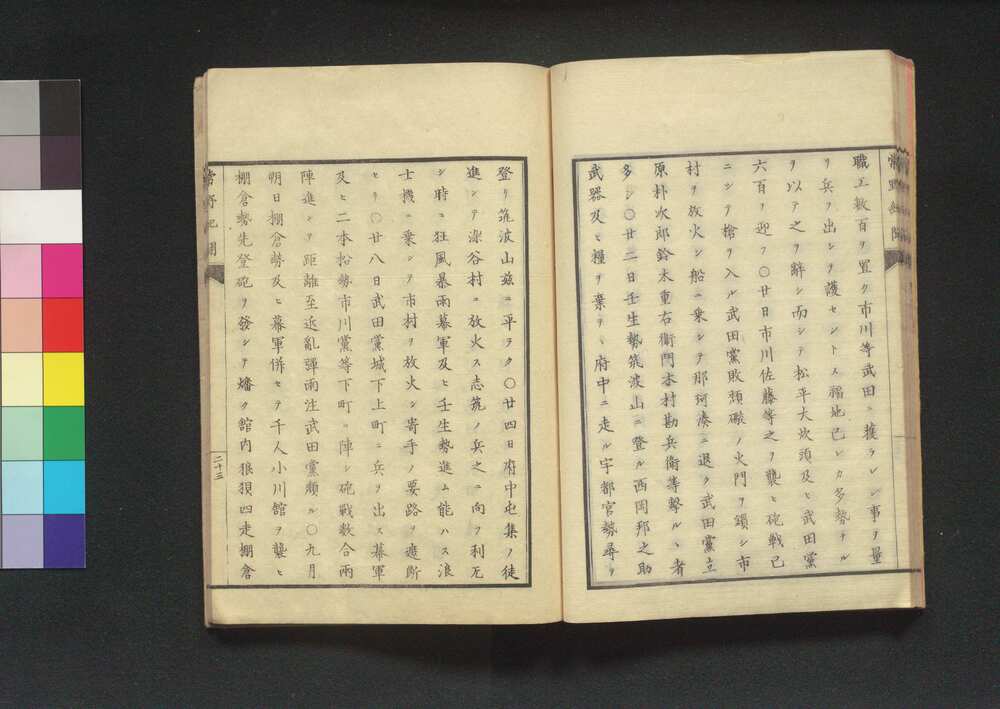 職工数百ヲ置ク市川等武田ニ獲ラレン事ヲ量
リ兵ヲ出シテ護セントス福地已レカ多勢ナル
ヲ以テ之ヲ辞シ而シテ松平大炊頭及ヒ武田黨
六百ヲ迎フ〇廿日市川佐藤等之ヲ襲ヒ砲戦已
ニシテ槍ヲ入ル武田黨敗頽礮ノ火門ヲ鎖シ市
村ヲ放火シ船ニ乗シテ那珂湊ニ退ク武田黨立
原朴次郎鈴木重右衛門木村勘兵衛等撃ルヽ者
多シ〇廿二日壬生勢筑波山ニ登ル西岡邦之助
武器及ヒ糧ヲ棄テヽ府中ニ走ル宇都宮勢尋テ
登リ筑波山茲ニ平ラク〇廿四日府中屯集ノ徒
進シテ深谷村ニ放火ス志筑ノ兵之ニ向フ利无
シ時ニ狂風暴雨幕軍及ヒ壬生勢進ム能ハス浪
士機ニ乗シテ市村ヲ放火シ寄手ノ要路ヲ遮断
セリ〇廿八日武田黨城下上町ニ兵ヲ出ス幕軍
及ヒ二本松勢市川黨等下町ニ陣シ砲戦数合両
陣進ンテ距離至近乱彈雨注武田黨頽ル〇九月
朔日棚倉勢及ヒ幕軍併セテ千人小川館ヲ襲ヒ
棚倉勢先登砲ヲ發シテ燔ク館内狼狽四走棚倉
二十三